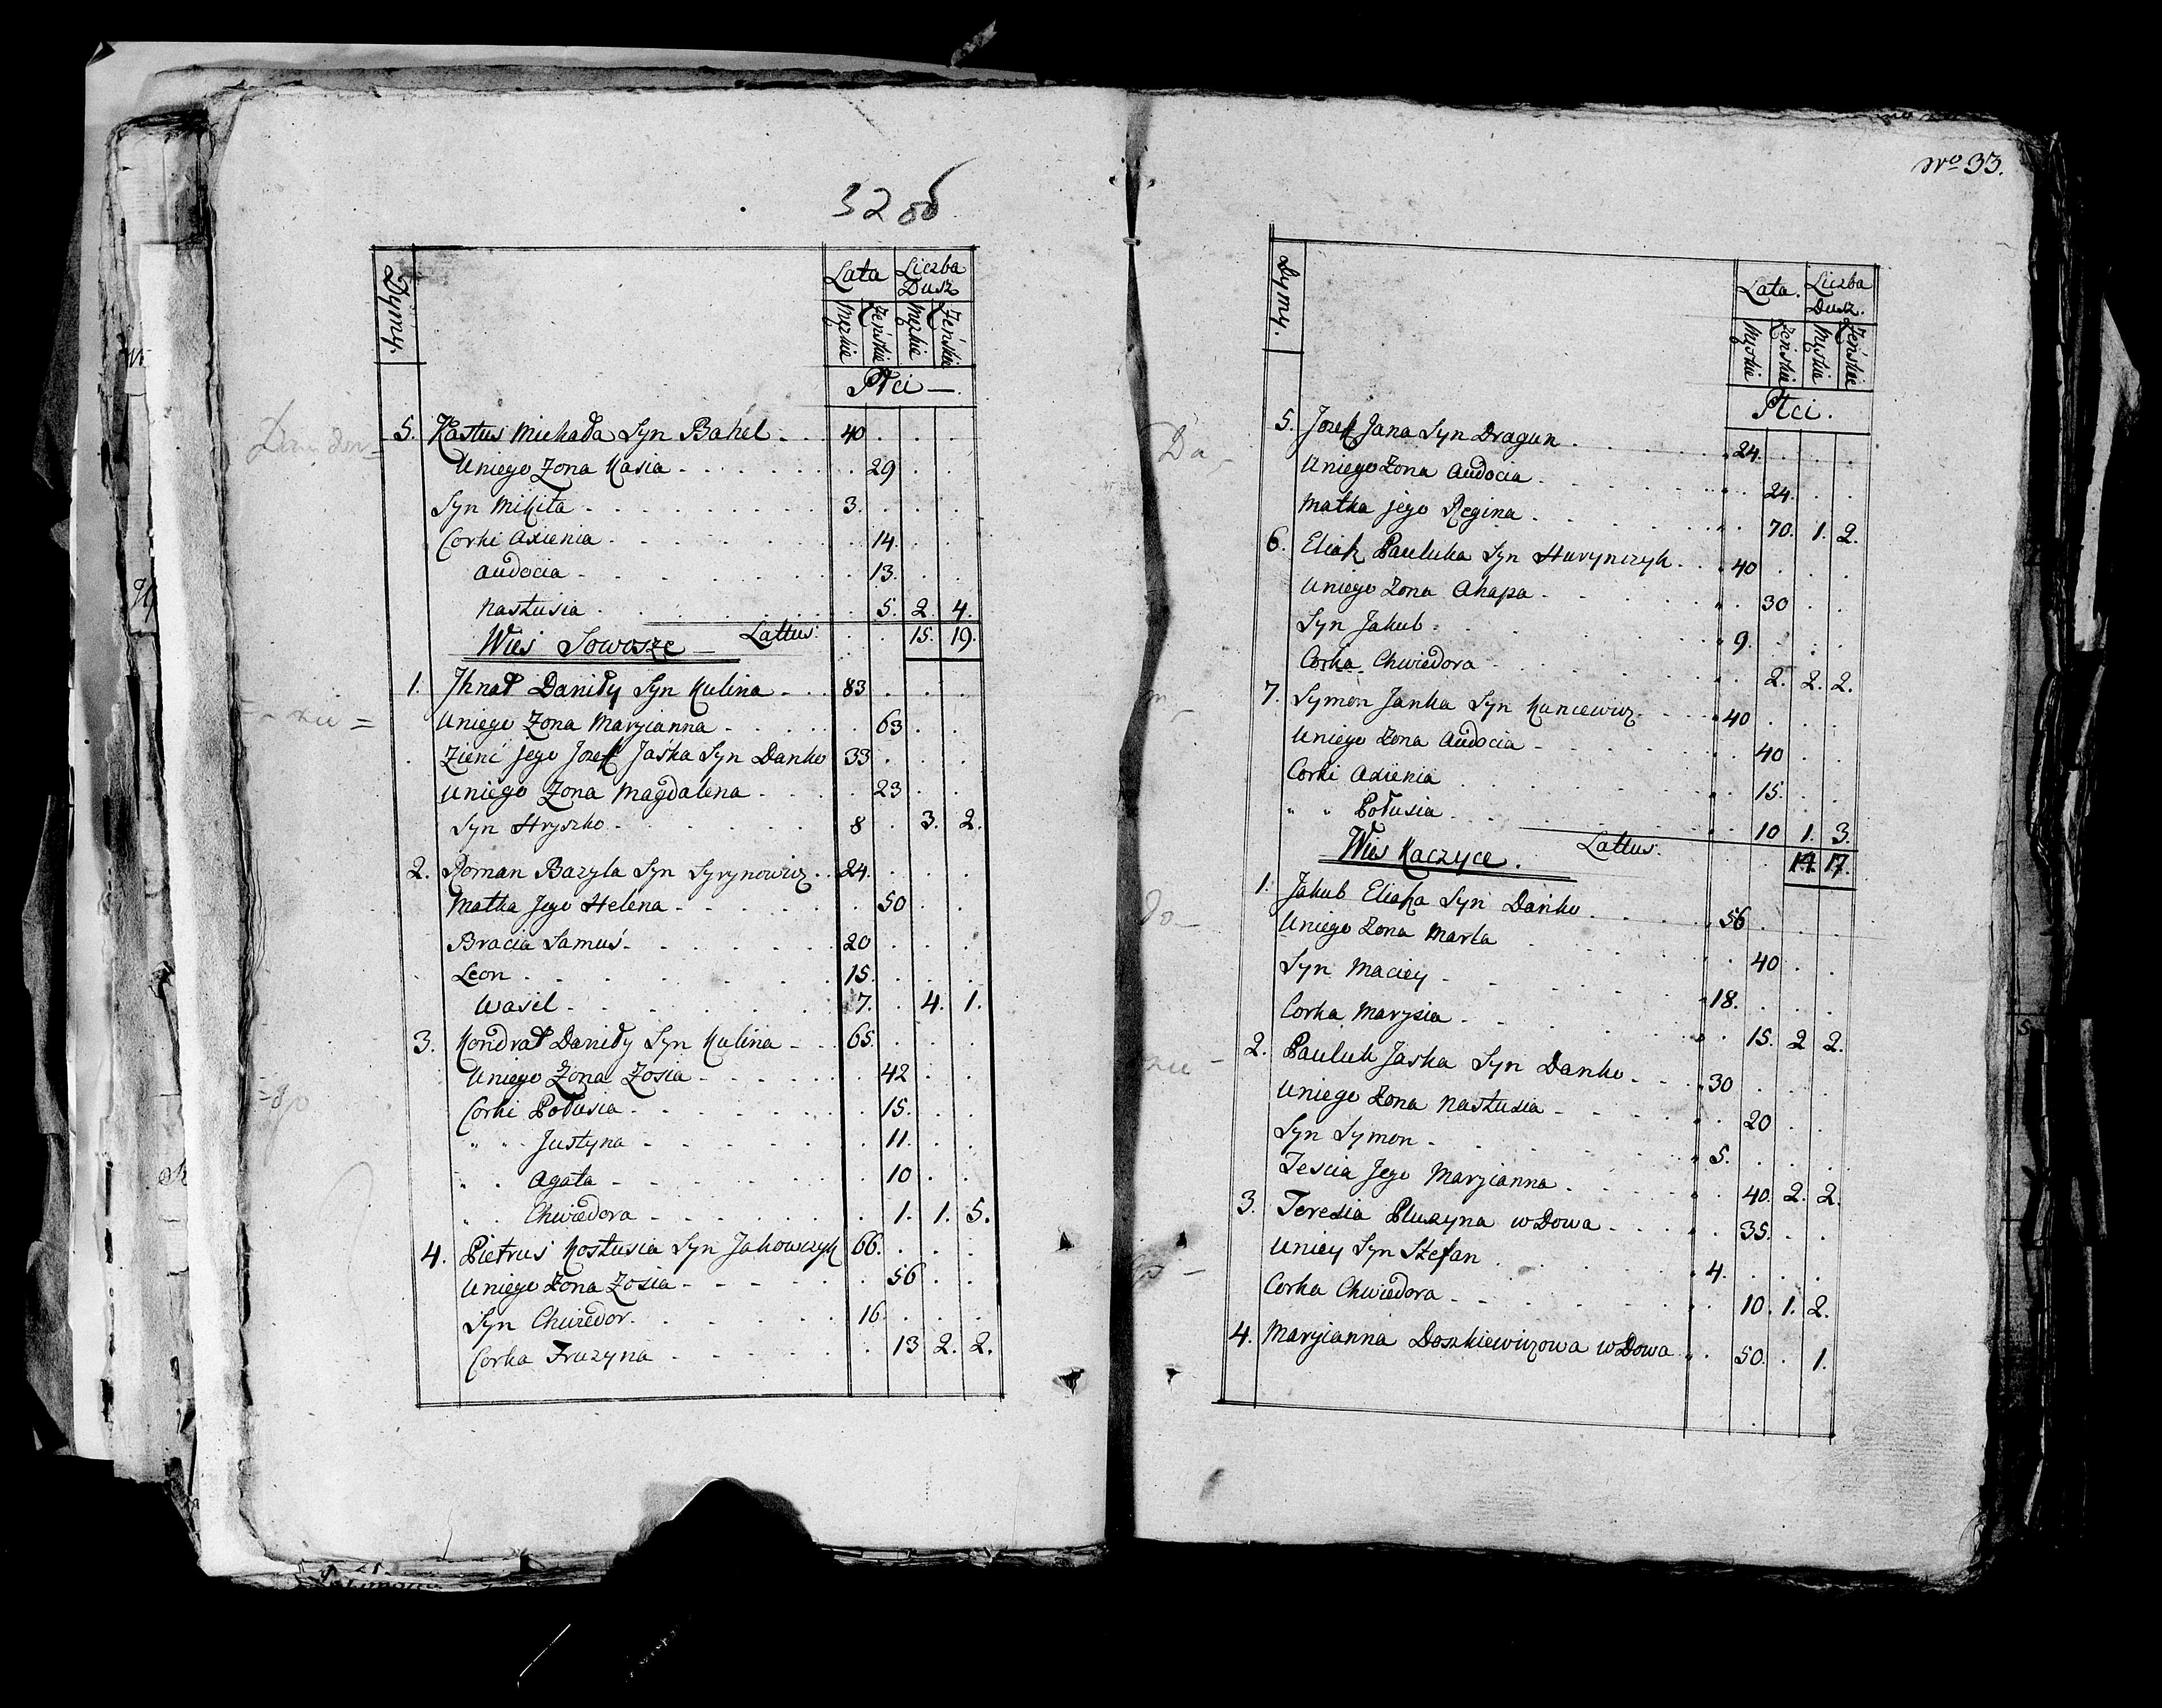 32 об
Dymy.
Lata Liczba Dusz
Męzkie Żeńskie Męzkie Żeńskie
Płci —
5. Kastus Michała Syn Bahel . . 40 . . .
Uniego Zona Kasia . . . . . . . 29 . .
Syn Mikita . . . . . . . . 3. . . .
Corki Axienia . . . . . . . 14. . .
Audocia . . . . . . . . 13. . .
Nastusia . . . . . . . 5. 2. 4.
Wies Sowosze — Lattus: . . 15. 19.
1. Jhnat Daniły Syn Kulina . . . 83 . . .
Uniego Zona Maryianna . . . . . . 63 . .
Zienć jego Jozef Jaska Syn Danko 33 . . .
Uniego Zona Magdalena . . . . . 23 . .
Syn Hryszko . . . . . . 8 . 3. 2.
2. Roman Bazyla Syn Syrynowicz . . 24. . . .
Matka Jego Helena . . . . . . 50 . .
Bracia Samuś . . . . . . 20 . . .
Leon . . . . . . . . . 15. . . .
Wasil . . . . . . . 7. . 4. 1.
3. Kondrat Daniły Syn Kulina . . . 65. . . .
Uniego Zona Zosia . . . . . . 42 . .
Corki Połusia . . . . . . . 15. . .
" " Justyna . . . . . . 11. . .
" . Agata . . . . . . . 10 . .
" . Chwiedora . . . . . . . 1. 1. 5.
4. Pietruś Kostusia Syn Jakowczyk 66. . . .
Uniego Zona Zosia . . . . . . 56 . .
Syn Chwiedor . . . . . . 16 . . .
Corka Fruzyna . . . . . . . 13 2. 2.
No 33.
Dymy.
Lata. Liczba Dusz.
Męzkie Żeńskie Męzkie Żeńskie
Płci.
5. Jozef Jana Syn Dragun . . . . . 24. . . .
Uniego Zona Audocia . . . . . . . 24. . .
Matka jego Regina . . . . . . . 70. 1. 2.
6. Eliah Pauluka Syn Hurynczyk . . 40 . . .
Uniego Zona Ahapa . . . . . . . 30 . .
Syn Jakub . . . . . . . 9. . . .
Corka Chwiedora . . . . . . . 2. 2. 2.
7. Symon Janka Syn Kuncewicz . . . 40 . . .
Uniego Zona Audocia . . . . . . . 40 . .
Corki Axienia . . . . . . . . 15. . .
" " Połusia . . . . . . . . 10 1. 3.
Wies Kaczyce. Lattus. . . 14. 17.
1. Jakub Eliaha Syn Danko . . . . . 56 . . .
Uniego Zona Marta . . . . . . . 40 . .
Syn Maciey . . . . . . . . 18. . . .
Corka Marysia . . . . . . . . 15. 2 2.
2. Pauluk Jaska Syn Danko . . . 30 . . .
Uniego Zona Nastusia . . . . . . . 20 . .
Syn Symon . . . . . . . . 5. . . .
Tescia Jego Maryianna . . . . . . 40. 2. 2.
3. Teresia Pluszyna wDowa . . . . . 35. . .
Uniey Syn Stefan . . . . . . . 4. . . .
Corka Chwiedora . . . . . . . . 10. 1. 2.
4. Maryianna Doszkiewiczowa wDowa . . 50. . 1.